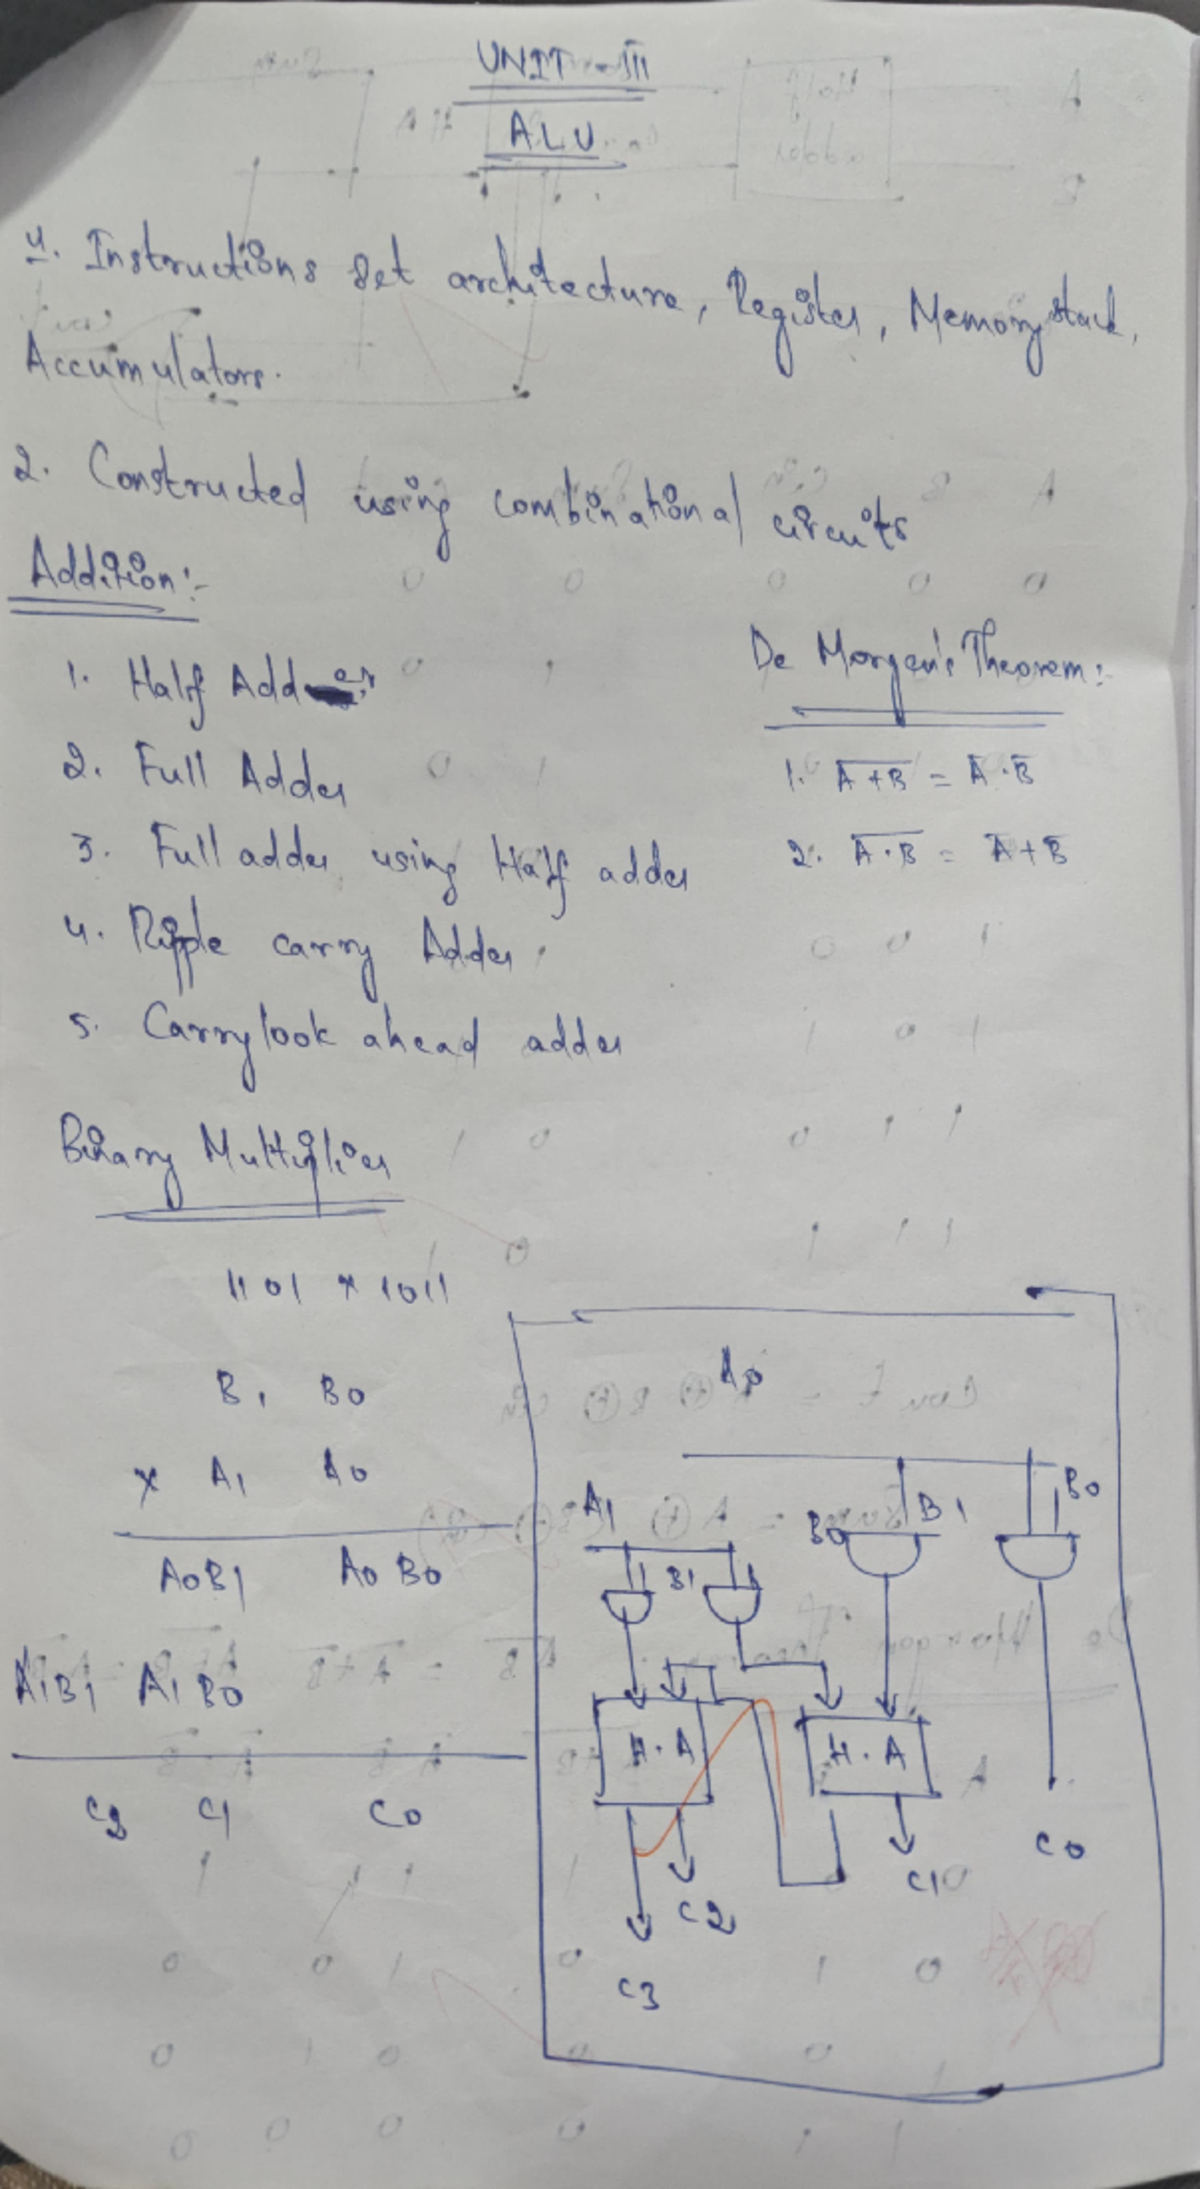 UNIT - III
ALU
4. Instructions Set architecture, Register, Memory stack,
Accumulators.
2. Constructed using combinational circuits
Addition:-
1. Half Adder
2. Full Adder
3. Full adder using Half adder
4. Ripple carry Adder
5. Carry look ahead adder
De Morgan's Theorem:-
1. A̅+̅B̅ = A̅ · B̅
2. A̅·̅B̅ = A̅ + B̅
Binary Multiplier
1101 × 1011
B1 B0
× A1 A0
A0B1 A0B0
A1B1 A1B0
C2 C1 C0
A0
A1 B1 B0 B1 B0
H.A H.A
C0
C1
C2
C3